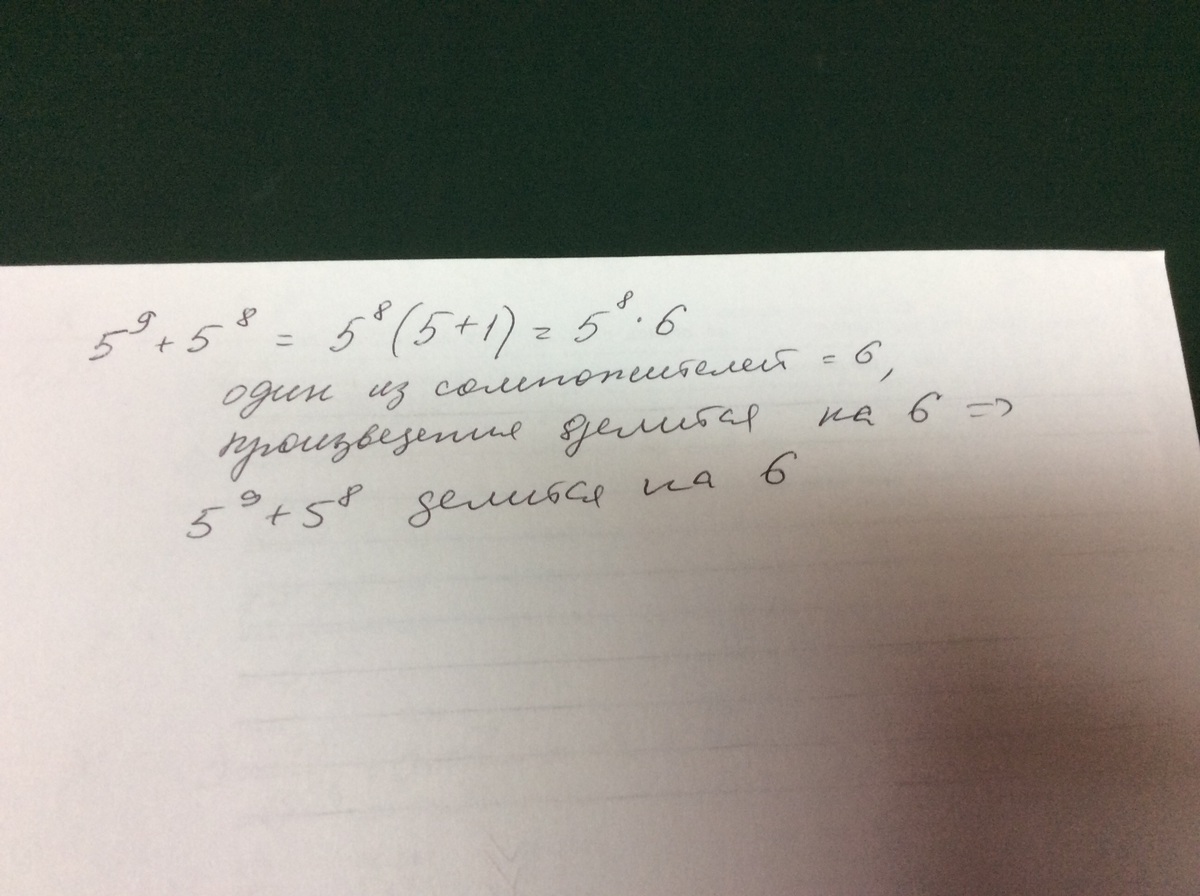 5⁹ + 5⁸ = 5⁸(5+1) = 5⁸ · 6
один из сомножителей = 6,
произведение делится на 6 =>
5⁹ + 5⁸ делится на 6